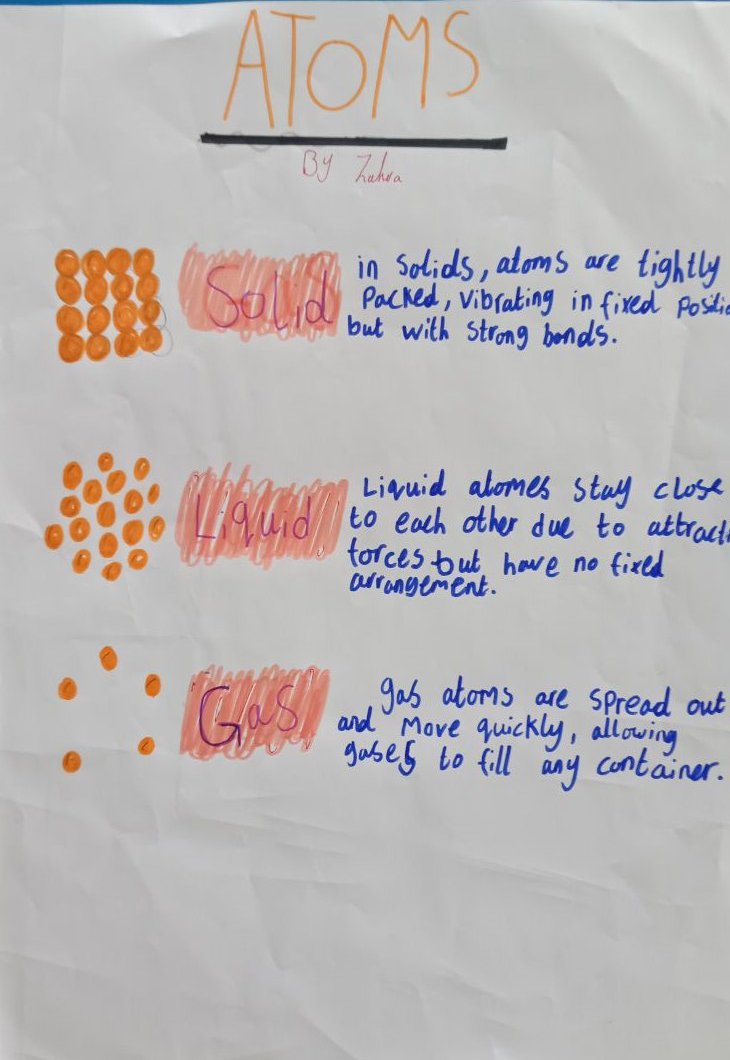 ATOMS
By Zahra
Solid
in Solids, atoms are tightly
Packed, Vibrating in fixed
but with strong bonds.
Liquid
Liquid atomes stay close
to each other due to
forces but have no fixed
arrangement.
Gas
gas atoms are spread out
and Move quickly, allowing
gases to fill any container.